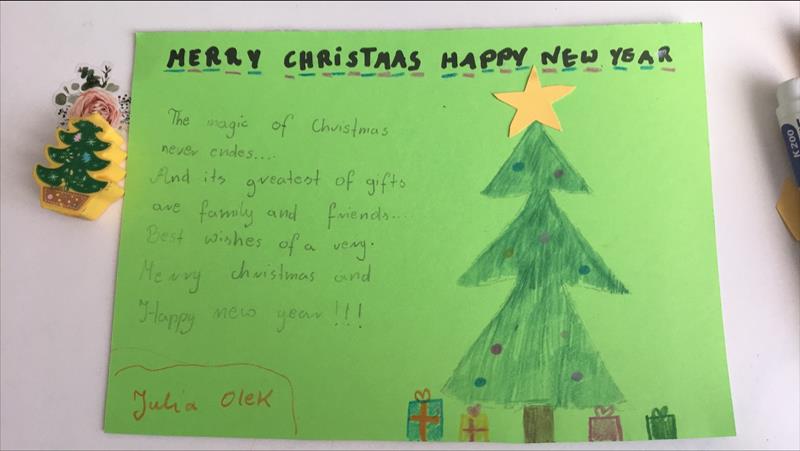 MERRY CHRiSTMAS HAPPY NEW YEAR
The magic of Christmas
never endes...
And its greatest of gifts
are family and friends...
Best wishes of a very.
Merry christmas and
Happy new year!!!
Julia Olek
K200